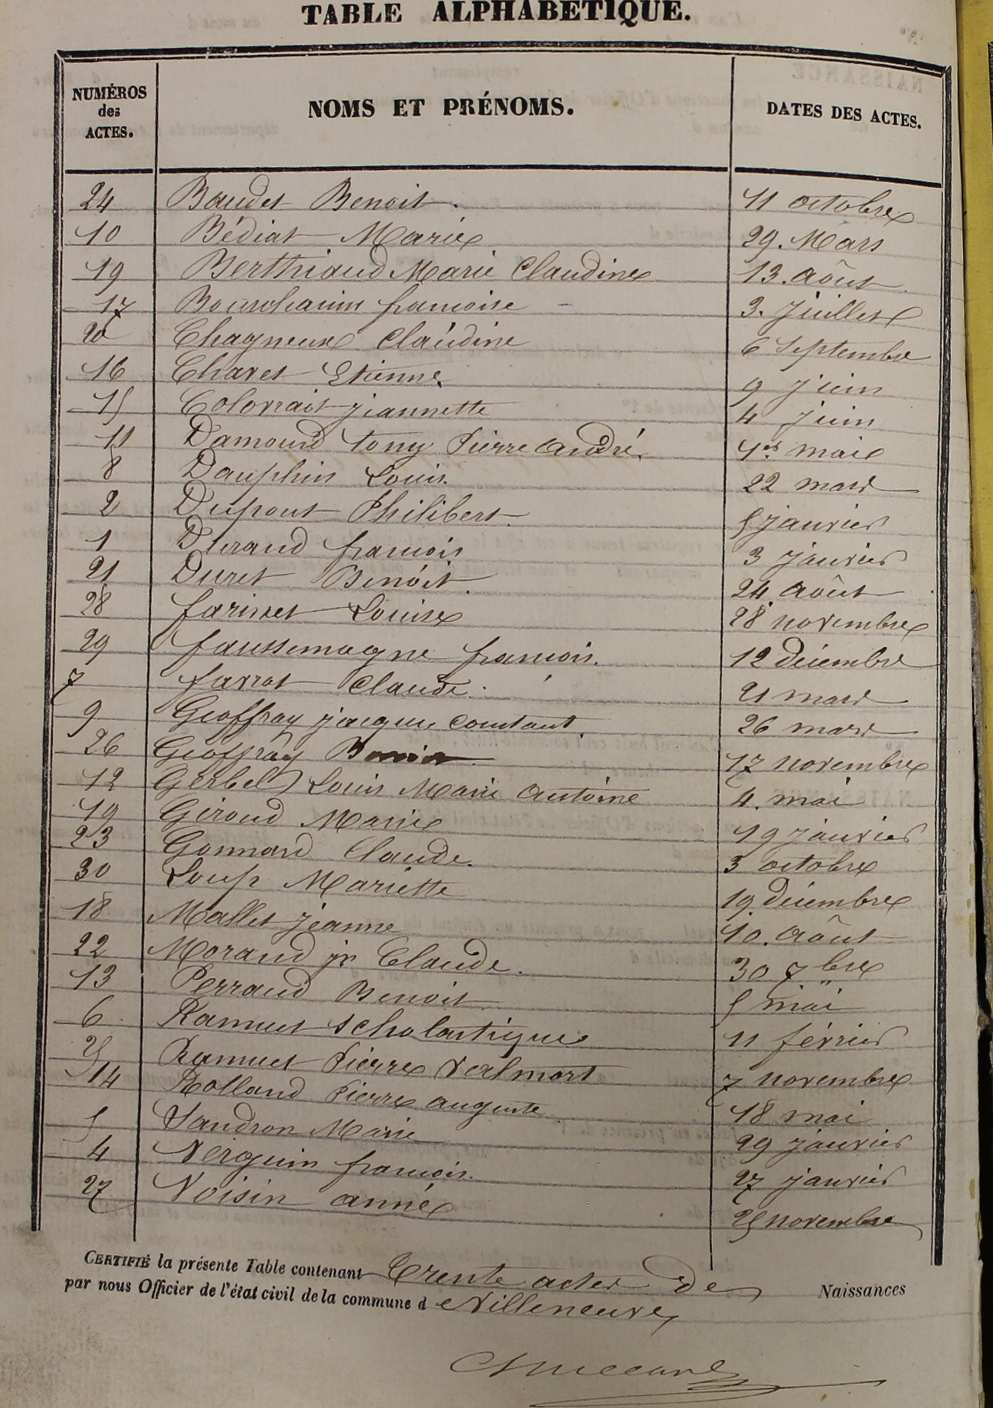 TABLE ALPHABÉTIQUE.
NUMÉROS des ACTES. NOMS ET PRÉNOMS. DATES DES ACTES.
24 Baudet Benoit. 11 octobre
10 Bédiat Marie 29. Mars
19 Berthiaud Marie Claudine 13. août
17 françoise 3. Juillet
20 Chagneux Claudine 6 Septembre
16 Charet Etienne 9 juin
15 jeannette 4 juin
11 Damourd tony Pierre andré. 1er mai
8 Dauphin Louis. 22 mars
2 Dupont Philibert. 5 janvier
1 Durand françois 3 janvier
21 Duret Benoit. 24 août
28 farinet Louise 28 novembre
29 faussemagne françois. 12 décembre
7 favrot Claude. 21 mars
9 Geoffray jacques Constant. 26 mars
26 Geoffray 17 novembre
12 Gerbel Louis Marie antoine 4. mai
19 Giroud Marie 19 janvier
23 Gonnard Claude. 3 octobre
30 Loup Mariette 19 décembre
18 Mallet jeanne 10. août
22 Morand jn Claude. 30 7bre
13 Perraud Benoit 5 mai
6 Ramuet Scholastique 11 février
25 Ramuet Pierre Valmort 7 novembre
14 Rolland Pierre auguste 18 mai
5 Sandron Marie 29 janvier
4 Verguin françois. 27 janvier
27 Voisin anne 25 novembre
CERTIFIÉ la présente Table contenant Trente actes de Naissances
par nous Officier de l'état civil de la commune d e Villeneuve